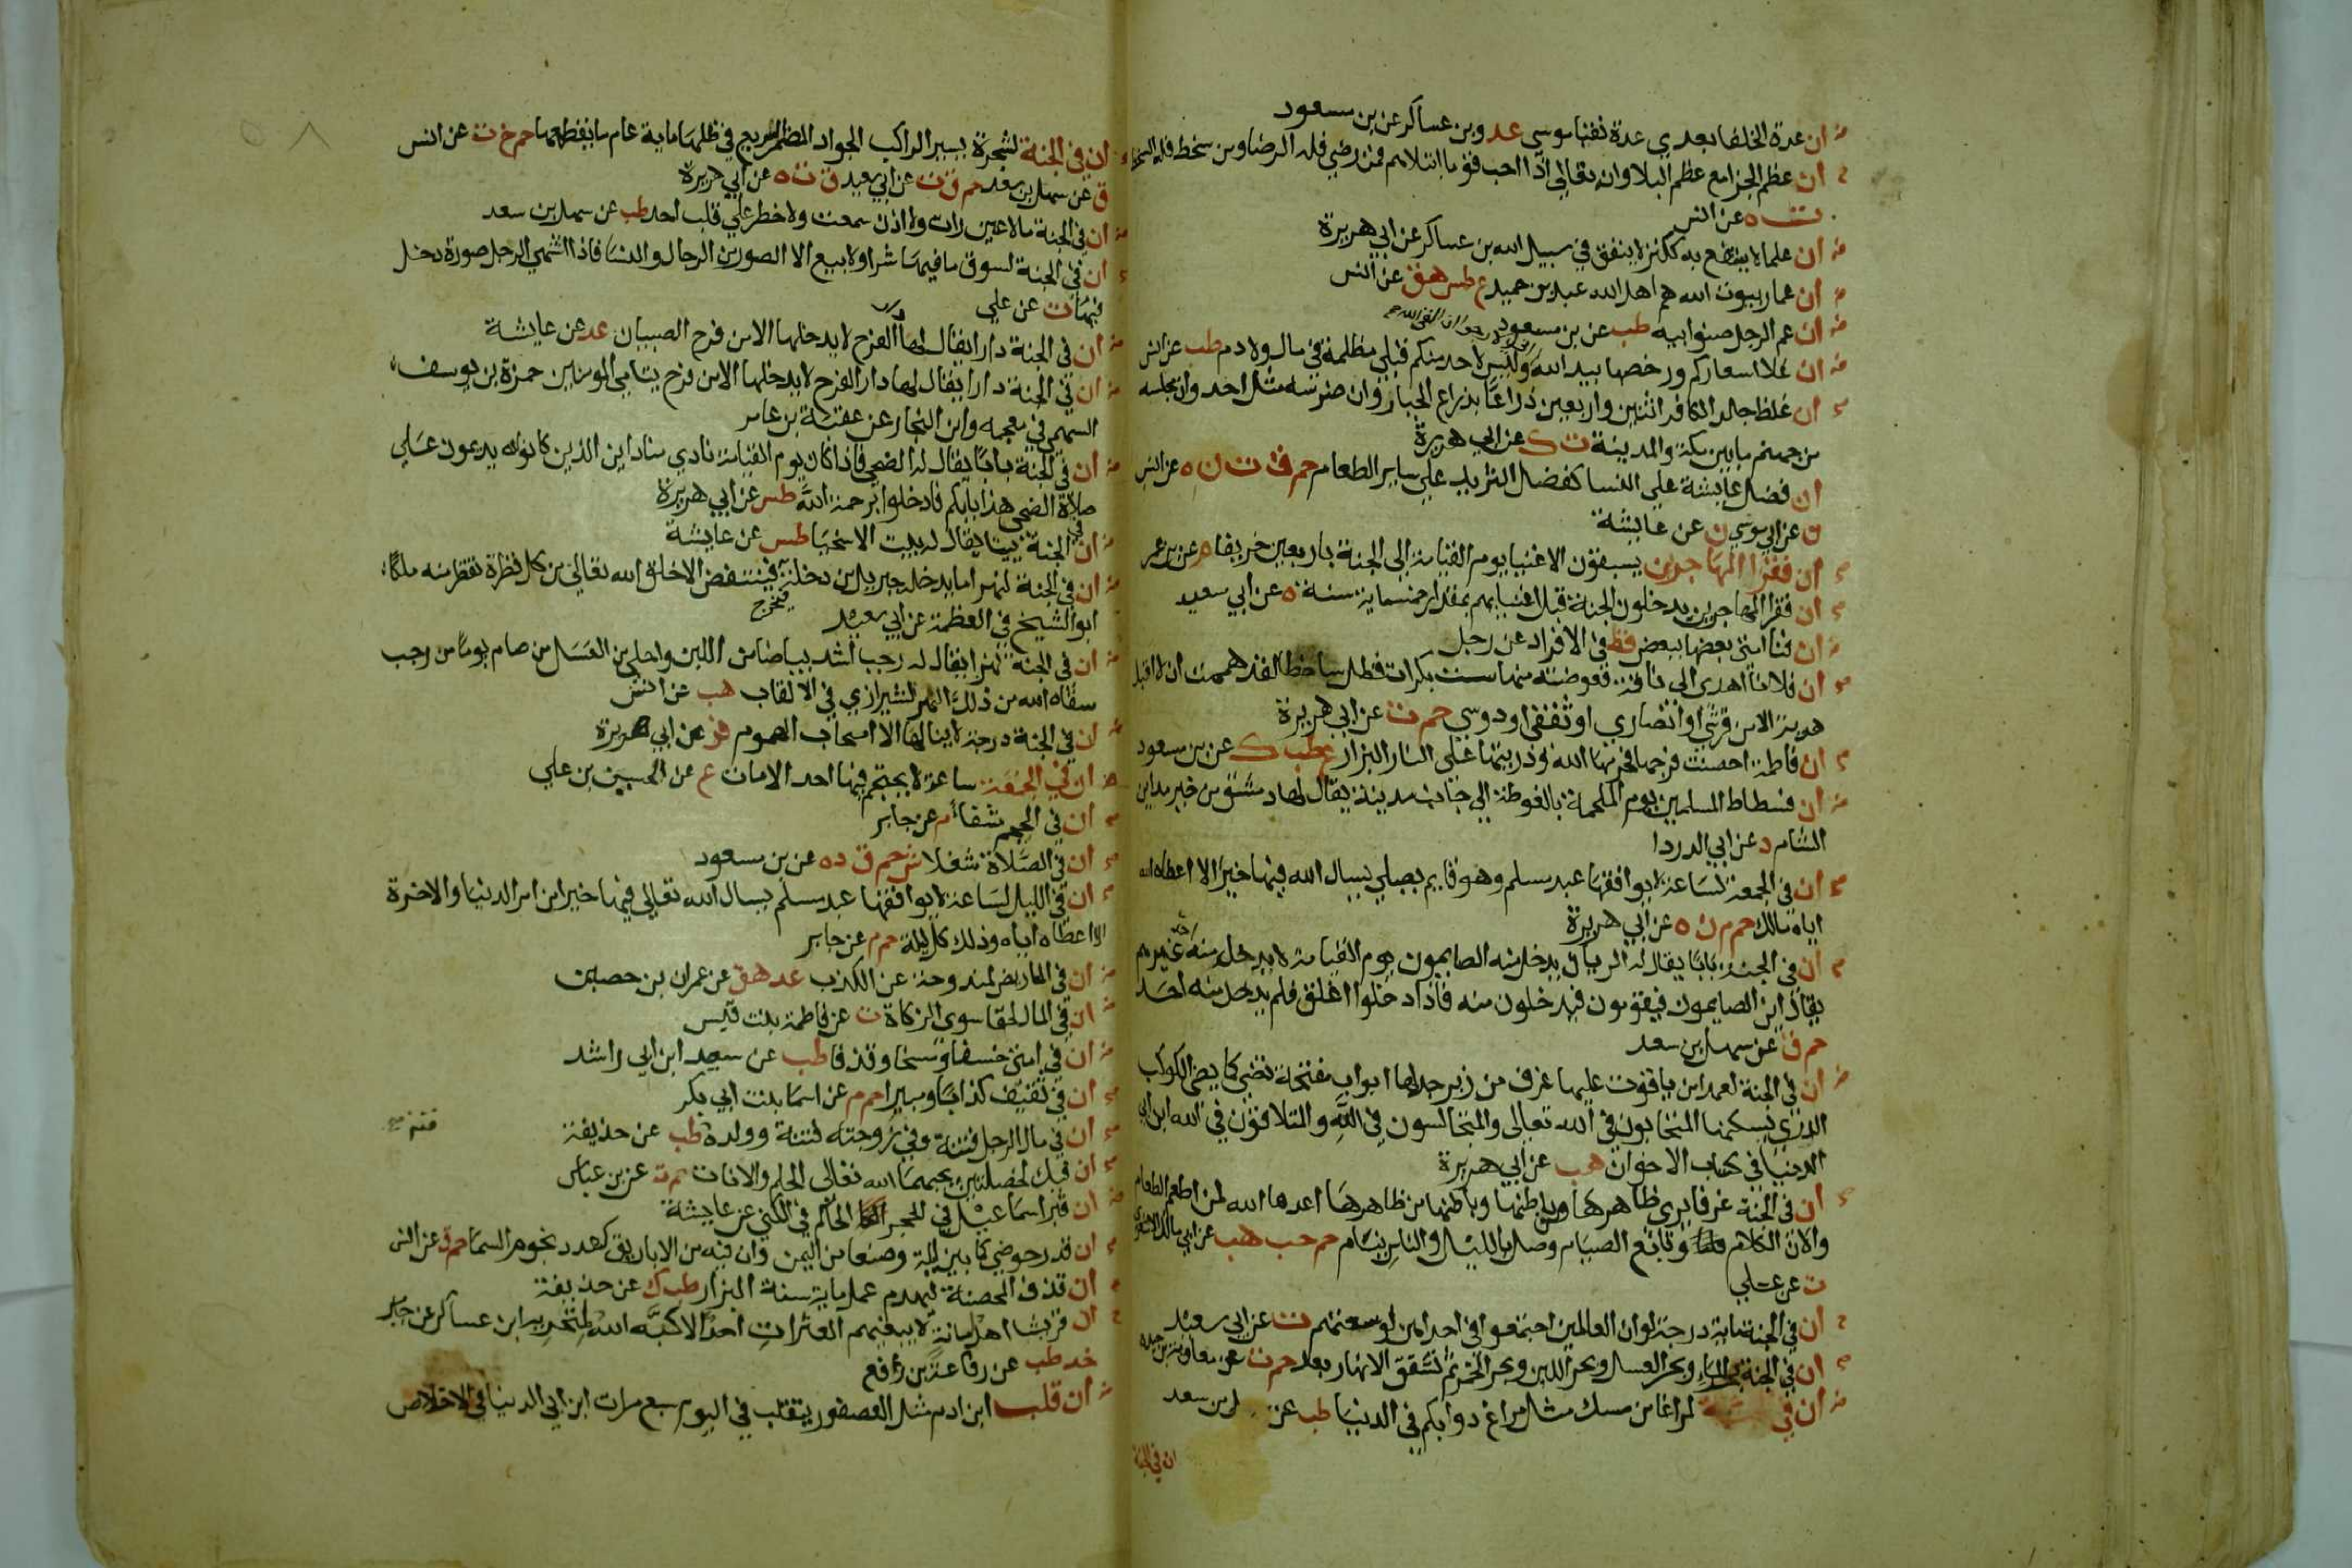 ان عدة الخلفا بعدي عدة نقبا موسى عد وبن عساكر عن بن مسعود
ان عظم الجزا مع عظم البلا وان الله تعالى اذا احب قوما ابتلاهم فمن رضي فله الرضا ومن سخط فله السخط
ت ه عن انس
ان علما لا ينتفع به ككنز لا ينفق في سبيل الله بن عساكر عن ابي هريرة
ان عمار بيوت الله هم اهل الله عبد بن حميد ع طس هق عن انس
ان عم الرجل صنو ابيه طب عن بن مسعود
ان غلا اسعاركم ورخصها بيد الله وليس لاحد منكم قبلي مظلمة في مال ولا دم طب عن انس
ان غلظ جلد الكافر اثنين واربعين ذراعا بذراع الجبار وان ضرسه مثل احد وان مجلسه
من جهنم ما بين مكة والمدينة ت ك عن ابي هريرة
ان فضل عايشة على النسا كفضل الثريد على ساير الطعام حم ق ت ن ه عن انس
ن عن ابي موسى ن عن عايشة
ان فقرا المهاجرين يسبقون الاغنيا يوم القيامة الى الجنة باربعين خريفا م عن بن عمر
ان فقرا المهاجرين يدخلون الجنة قبل اغنيايهم بمقدار خمسماية سنة ه عن ابي سعيد
ان فنا امتي بعضها ببعض قط في الافراد عن رجل
ان فلانا اهدى الى ناقة فعوضته منها ست بكرات فظل ساخطا لقد هممت ان لا اقبل
هدية الا من قرشي او انصاري او ثقفي او دوسي حم ت عن ابي هريرة
ان فاطمة احصنت فرجها فحرمها الله وذريتها على النار البزار ع طب ك عن بن مسعود
ان فسطاط المسلمين يوم الملحمة بالغوطة الى جانب مدينة يقال لها دمشق من خير مداين
الشام د عن ابي الدردا
ان في الجمعة لساعة لا يوافقها عبد مسلم وهو قايم يصلي يسال الله فيها خيرا الا اعطاه الله
اياه مالك حم م ن ه عن ابي هريرة
ان في الجنة بابا يقال له الريان يدخل منه الصايمون يوم القيامة لا يدخل منه احد غيرهم
يقال اين الصايمون فيقومون فيدخلون منه فاذا دخلوا اغلق فلم يدخل منه احد
حم ق عن سهل بن سعد
ان في الجنة لعمدا من ياقوت عليها غرف من زبرجد لها ابواب مفتحة تضي كما يضي الكوكب
الدري يسكنها المتحابون في الله تعالى والمتجالسون في الله والمتلاقون في الله ابن ابي
الدنيا في كتاب الاخوان هب عن ابي هريرة
ان في الجنة غرفا يرى ظاهرها من باطنها وباطنها من ظاهرها اعدها الله لمن اطعم الطعام
والان الكلام وتابع الصيام وصلى بالليل والناس نيام حم حب هب عن ابي مالك الاشعري
ت عن علي
ان في الجنة ماية درجة لو ان العالمين اجتمعوا في احداهن لوسعتهم ت عن ابي سعيد
ان في الجنة بحر الماء وبحر العسل وبحر اللبن وبحر الخمر ثم تشقق الانهار بعد حم ت عن معاوية بن حيدة
ان في لمراغا من مسك مثل مراغ دوابكم في الدنيا طب عن سهل بن سعد
ان في الجنة
ان في الجنة لشجرة يسير الراكب الجواد المضمر السريع في ظلها ماية عام ما يقطعها حم خ ت عن انس
ق عن سهل بن سعد حم ق ت عن ابي سعيد ق ت ه عن ابي هريرة
ان في الجنة ما لا عين رات ولا اذن سمعت ولا خطر على قلب احد طب عن سهل بن سعد
ان في الجنة لسوقا ما فيها شرا ولا بيع الا الصور من الرجال والنسا فاذا اشتهى الرجل صورة دخل
فيها ت عن علي
ان في الجنة دارا يقال لها دار الفرح لا يدخلها الا من فرح الصبيان عد عن عايشة
ان في الجنة دارا يقال لها دار الفرح لا يدخلها الا من فرح يتامى المومنين حمزة بن يوسف
السهمي في معجمه وابن النجار عن عقبة بن عامر
ان في الجنة بابا يقال له الضحى فاذا كان يوم القيامة نادى مناد اين الذين كانوا يدعون على
صلاة الضحى هذا بابكم فادخلوا برحمة الله طس عن ابي هريرة
ان في الجنة بيتا يقال له بيت الاسخيا طس عن عايشة
ان في الجنة لنهرا ما يدخله جبريل من دخلة فيخرج فينتفض الا خلق الله تعالى من كل قطرة تقطر منه ملكا
ابو الشيخ في العظمة عن ابي سعيد
ان في الجنة نهرا يقال له رجب اشد بياضا من اللبن واحلى من العسل من صام يوما من رجب
سقاه الله من ذلك النهر الشيرازي في الالقاب هب عن انس
ان في الجنة درجة لا ينالها الا اصحاب الهموم فر عن ابي هريرة
ان في الجمعة ساعة لا يحتجم فيها احد الا مات ع عن الحسين بن علي
ان في الحجم شفا م عن جابر
ان في الصلاة شغلا ش حم ق د ه عن بن مسعود
ان في الليل لساعة لا يوافقها عبد مسلم يسال الله تعالى فيها خيرا من امر الدنيا والاخرة
الا اعطاه اياه وذلك كل ليلة حم م عن جابر
ان في المعاريض لمندوحة عن الكذب عد هق عن عمران بن حصين
ان في المال لحقا سوى الزكاة ت عن فاطمة بنت قيس
ان في امتي خسفا ومسخا وقذفا طب عن سعيد ابن ابي راشد
ان في ثقيف كذابا ومبيرا حم م عن اسما بنت ابي بكر
ان في مال الرجل فتنة وفي زوجته فتنة وولده طب عن حذيفة
فتنة صح
ان فيك لخصلتين يحبهما الله تعالى الحلم والاناة م ت عن بن عباس
ان قبر اسماعيل في الحجر الحاكم في الكنى عن عايشة
ان قدر حوضي كما بين ايلة وصنعا من اليمن وان فيه من الاباريق كعدد نجوم السما حم ق عن انس
ان قذف المحصنة ليهدم عمل ماية سنة البزار طب ك عن حذيفة
ان قريشا اهل امانة لا يبغيهم العثرات احد الا كبه الله لمنخريه ابن عساكر عن جابر
خد طب عن رفاعة بن رافع
ان قلب ابن ادم مثل العصفور يتقلب في اليوم سبع مرات ابن ابي الدنيا في الاخلاص